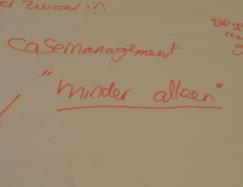 er zwaar in
casemanagement
"minder alleen"